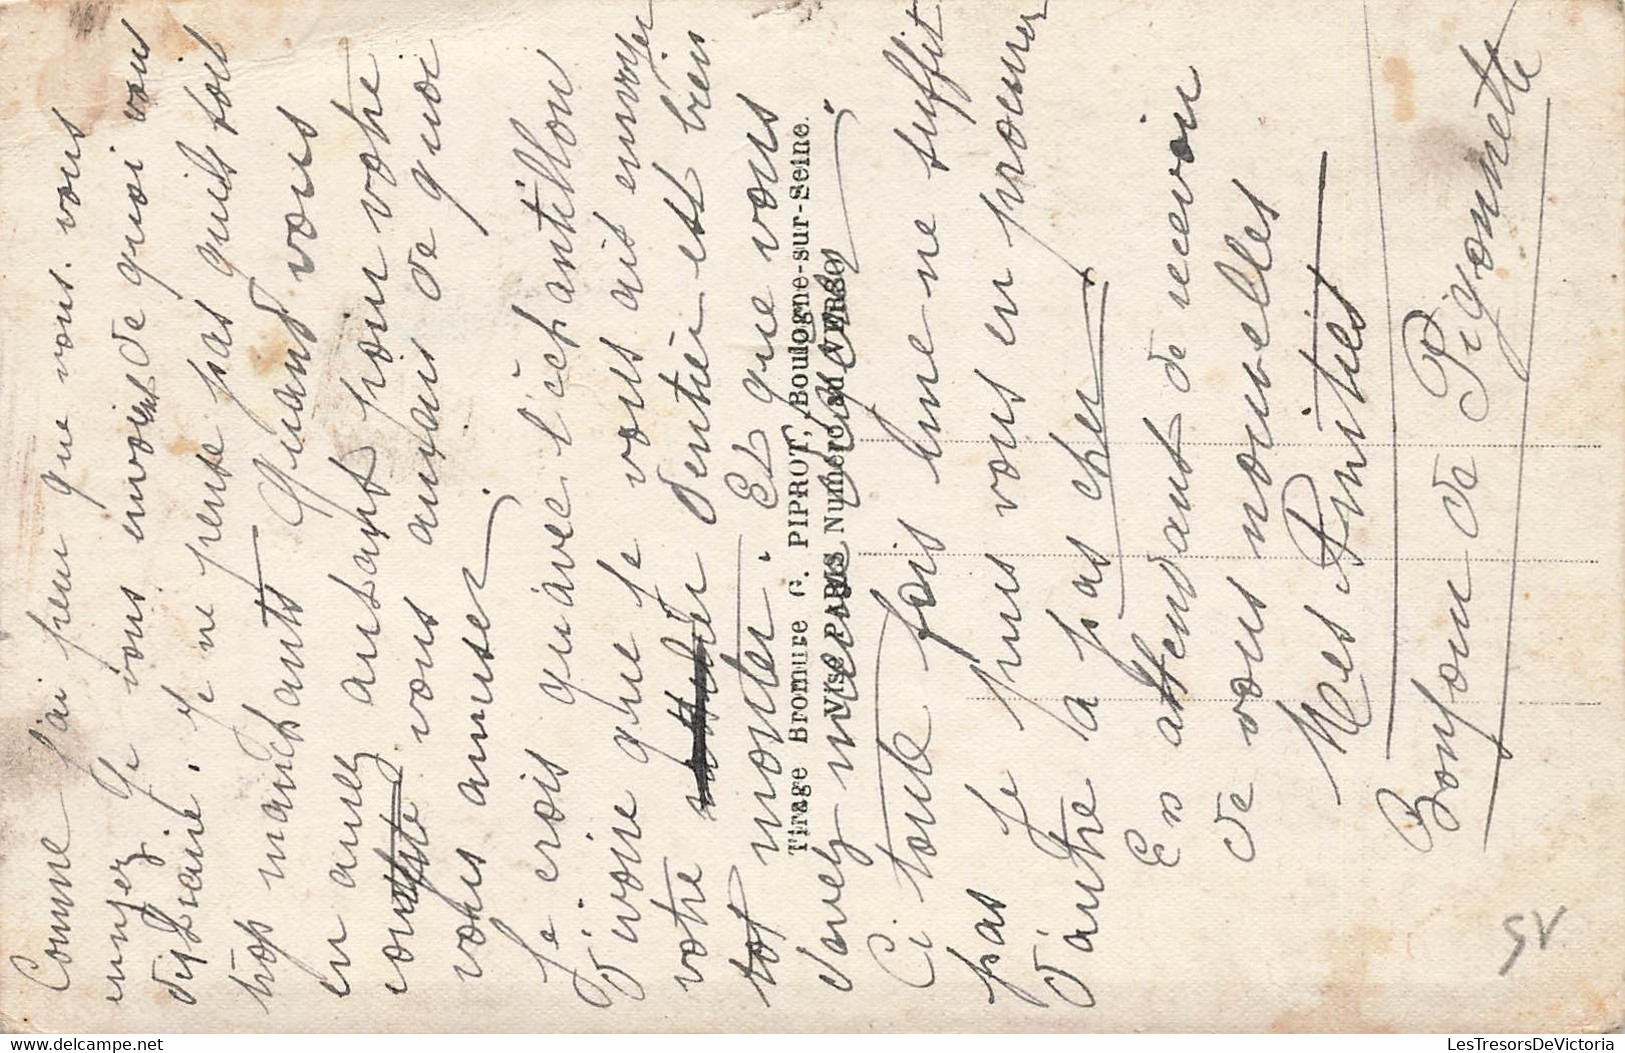 Comme j'ai peur que vous vous
ennuyez Je vous envoie de quoi vous
distraire. Je ne pense pas quils soit
trop manchants Quand vous
en aurez autant pour votre
compte vous aurais de quoi
vous amuser
Je crois qu'avec l'échantillon
d'ivoire que je vous ais envoyer
votre dentier est bien
tot monter. Et que vous
savez mieux
Ci toute fois une ne suffit
pas Je puis vous en procurer
d'autre la pas cher
En attendant de recevoir
de vous nouvelles
Mes Amitiés
Bonjour de Pigonnette
Tirage Bromure C. PIPROT, Boulogne-sur-Seine.
Visé PARIS Numéro au VERSO
SV
LesTresorsDeVictoria
delcampe.net